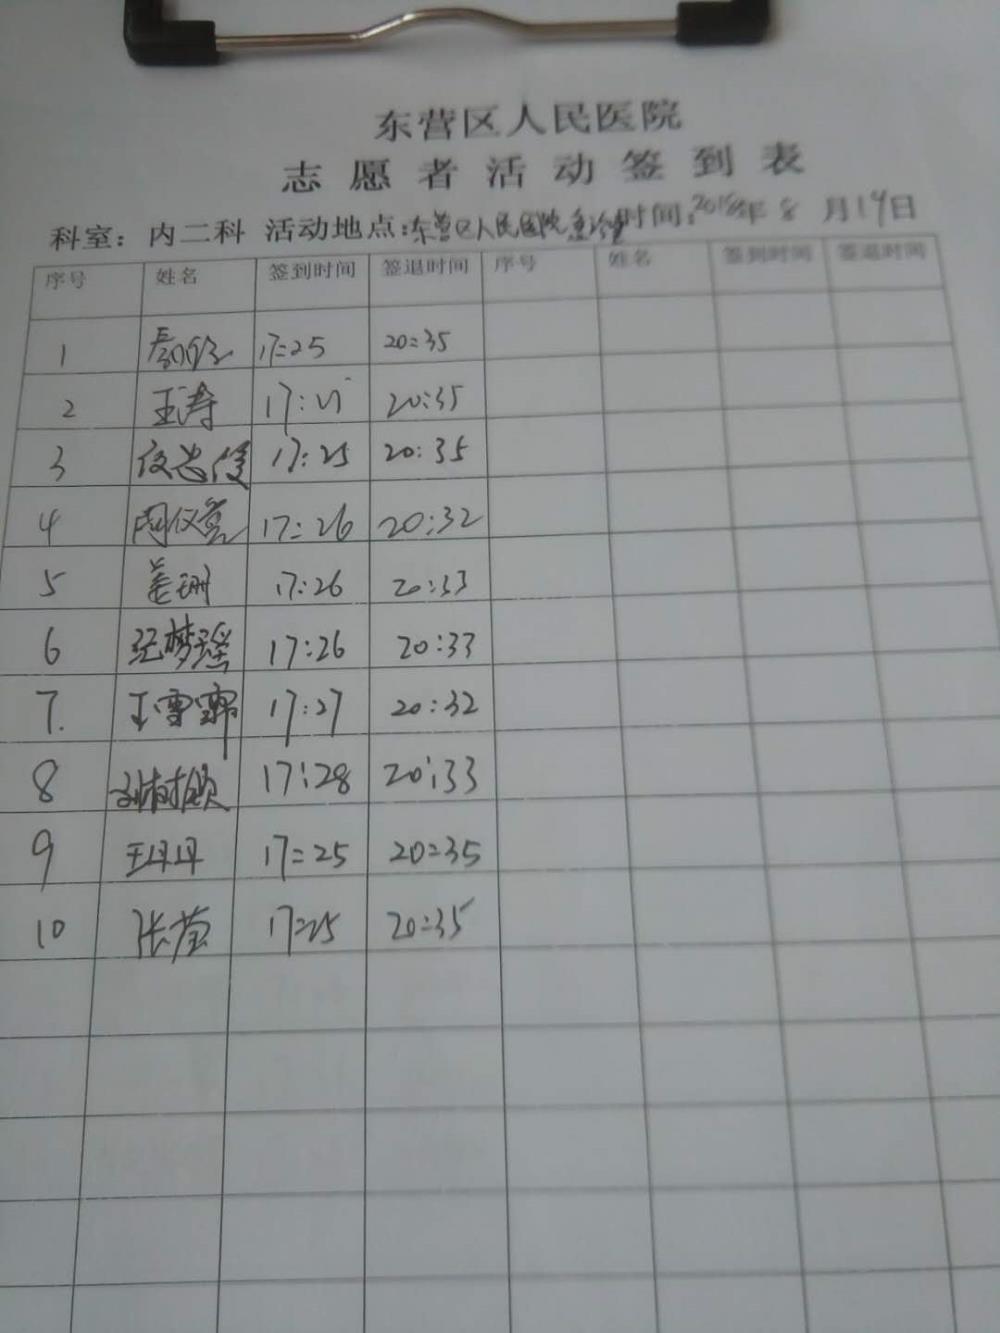 东营区人民医院
志愿者活动签到表
科室：内二科 活动地点：东营区人民医院 时间：2018年8月19日
序号 姓名 签到时间 签退时间 序号 姓名 签到时间 签退时间
1 17:25 20:35
2 王涛 20:35
3 17:25 20:35
4 17:26 20:32
5 姜珊 17:26 20:33
6 纪梦瑶 17:26 20:33
7. 王雪 17:27 20:32
8 17:28 20:33
9 王丹丹 17:25 20:35
10 张莹 17:25 20:35